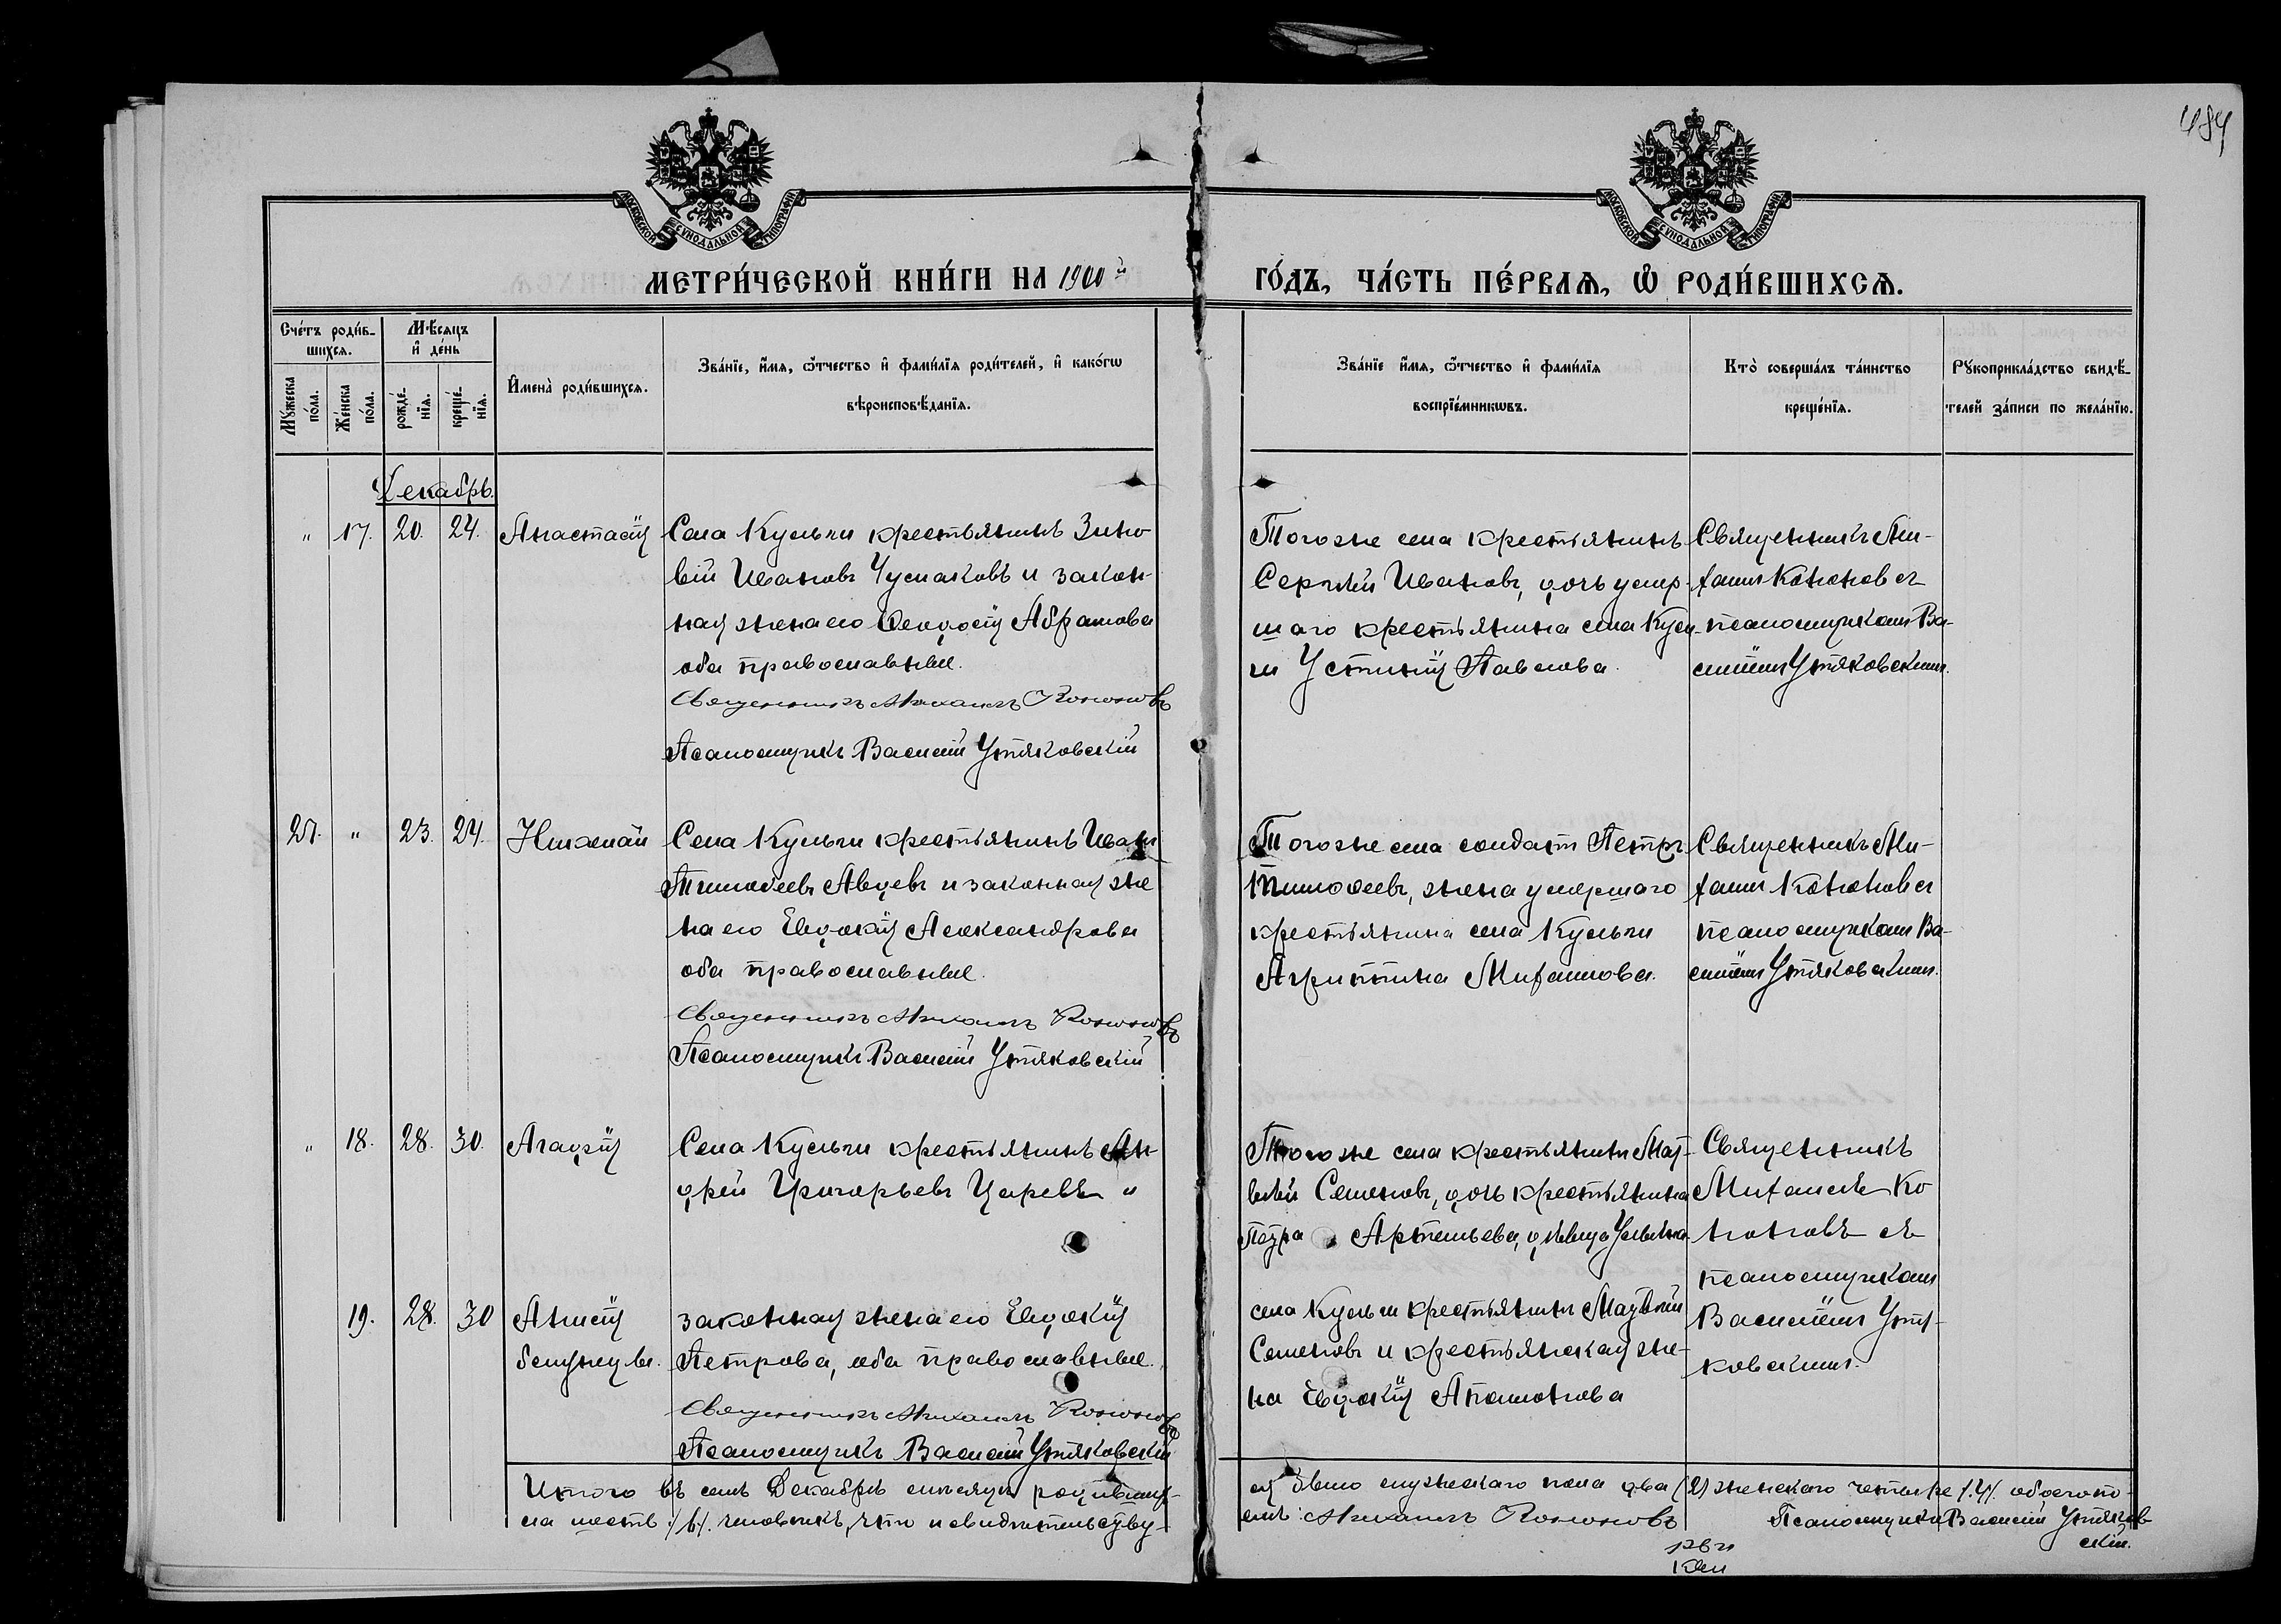 484
МОСКОВСКОЙ СѴНОДАЛЬНОЙ ТИПОГРАФІИ
МОСКОВСКОЙ СѴНОДАЛЬНОЙ ТИПОГРАФІИ
МЕТРИ́ЧЕСКОЙ КНИ́ГИ НА 1900й
ГО́ДЪ, ЧА́СТЬ ПЕ́РВАѦ, Ѡ РОДИ́ВШИХСѦ.
Сче́тъ роди́в-
шихся.
Мꙋ́жеска
по́ла.
Же́нска
по́ла.
Мѣ́сяцъ
и҆ де́нь
рожде́-
нїя.
креще́-
нїя.
И҆мена̀ роди́вшихся.
Зва́нїе, и҆́мя, ѻ҆́тчество и҆ фами́лїя роди́телей, и҆ како́гѡ
вѣроисповѣ́данїя.
Зва́нїе и҆́мя, ѻ҆́тчество и҆ фами́лїя
воспрїе́мникѡвъ.
Кто̀ соверша́лъ та́инство
креще́нїя.
Рꙋкоприкла́дство свидѣ́-
телей за́писи по жела́нїю.
Декабрь.
" 17. 20. 24. Анастасія
Села Кульчи крестьянинъ Зино-
вій Ивановъ Чумаковъ и закон-
ная жена его Ѳеодосія Абрамова
оба православные.
Священникъ Михаилъ Кононовъ
Псаломщикъ Василій Утяковскій
Того же села крестьянинъ
Сергѣй Ивановъ, дочь умер-
шаго крестьянина села Куль-
чи Устинія Павлова.
Священникъ Ми-
хаилъ Кононовъ съ
псаломщикомъ Ва-
силіемъ Утяковскимъ.
" 23. 24. Николай
Села Кульчи крестьянинъ Иванъ
Тимоѳеевъ Авдевъ и законная же
на его Евдокія Александрова
оба православные.
Священникъ Михаилъ Кононовъ
Псаломщикъ Василій Утяковскій
Того же села солдатъ Петръ
Тимоѳеевъ, жена умершаго
крестьянина села Кульчи
Агриппина Михаилова.
Священникъ Ми-
хаилъ Кононовъ съ
псаломщикомъ Ва-
силіемъ Утяковскимъ.
" 18. 28. 30. Агафія
Села Кульчи крестьянинъ Ан-
дрей Григорьевъ Царевъ и
Того же села крестьянинъ Мат-
вѣй Семеновъ, дочь крестьянина
Петра Артемьева, дѣвица Ульяна
Священникъ
Михаилъ Ко
ноновъ съ
псаломщикомъ
Василіемъ Утя-
ковскимъ.
19. 28. 30 Анисія
близнецы.
законная жена его Евдокія
Петрова, оба православные.
Священникъ Михаилъ Кононовъ
Псаломщикъ Василій Утяковскій
села Кульчи крестьянинъ Матвѣй
Семеновъ и крестьянская же-
на Евдокія Апалонова
Итого въ семъ Декабрѣ мѣсяцѣ родивших-
ся было мужескаго пола два (2) женскаго четыре /.4/. обоего по-
ла шесть /6/. человѣкъ, что и свидѣтельству-
емъ: Михаилъ Кононовъ
Псаломщикъ Василій Утяков-
скій.